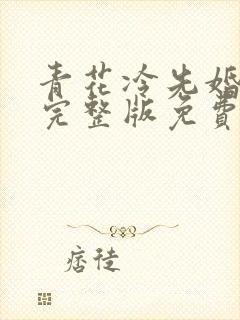 青花冷先婚
完整版免費
痞徒